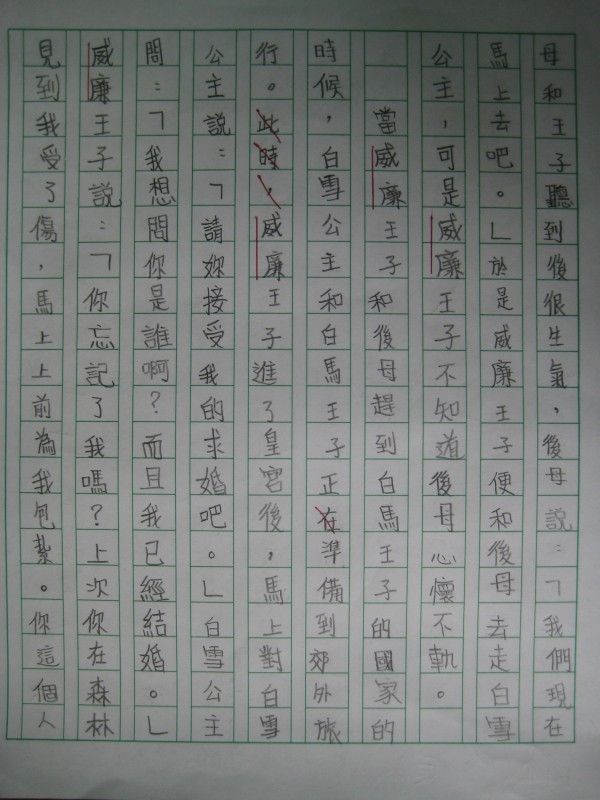 母和王子聽到後很生氣，後母說：「我們現在
馬上去吧。」於是威廉王子便和後母去走白雪
公主，可是威廉王子不知道後母心懷不軌。
當威廉王子和後母趕到白馬王子的國家的
時候，白雪公主和白馬王子正在準備到郊外旅
行。此時，威廉王子進了皇宮後，馬上對白雪
公主說：「請妳接受我的求婚吧。」白雪公主
問：「我想問你是誰啊？而且我已經結婚。」
威廉王子說：「你忘記了我嗎？上次你在森林
見到我受了傷，馬上上前為我包紮。你這個人